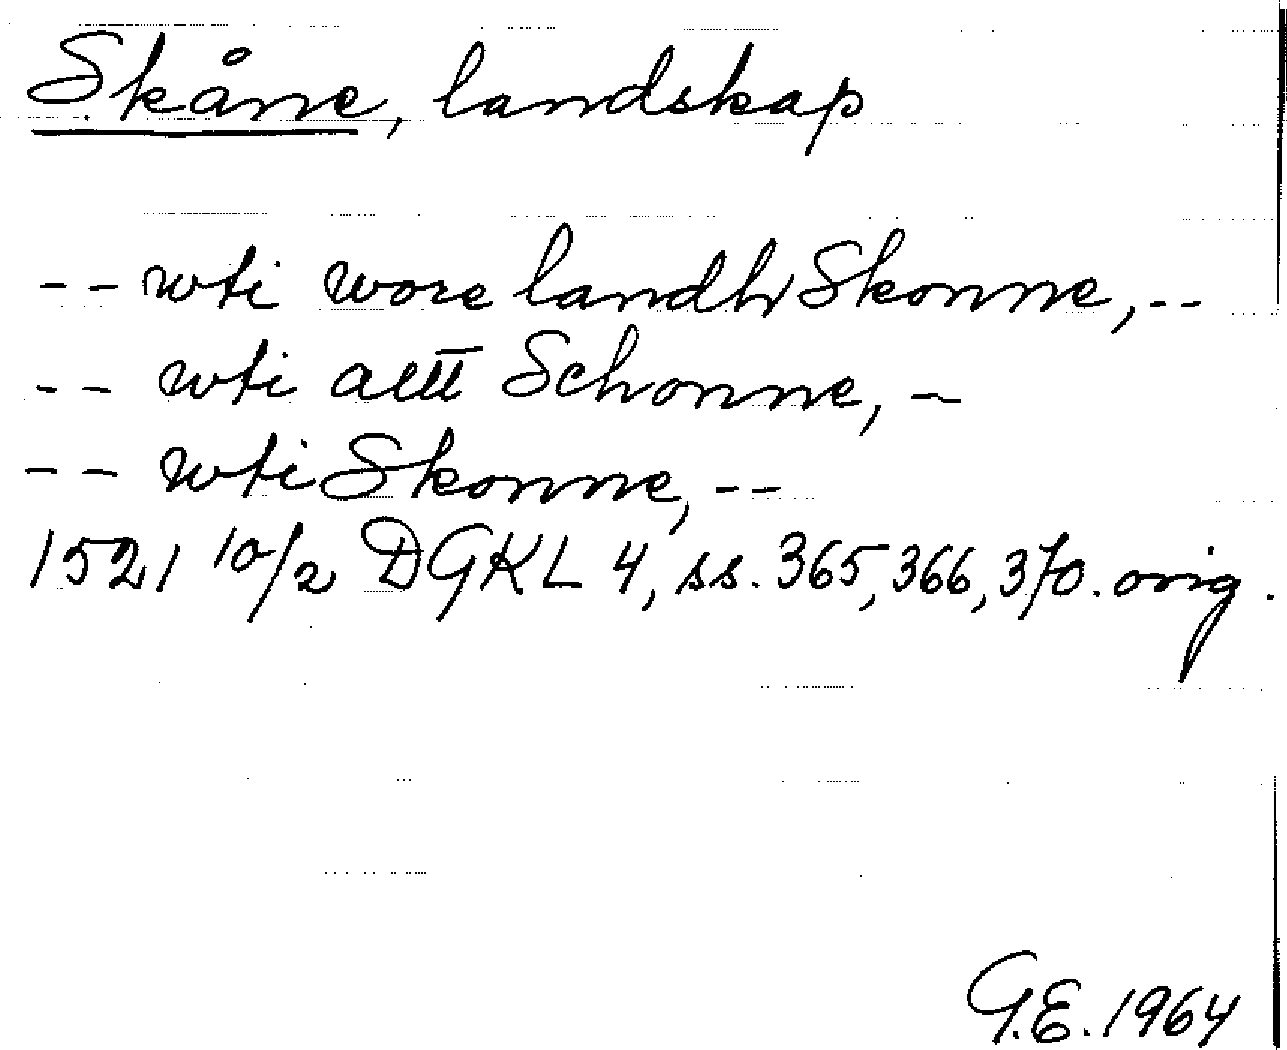 Skåne, landskap
-- wti wore landh Skonne, --
-- wti altt Schonne, -
-- wti Skonne, --
1521 10/2 DGKL 4, ss. 365, 366, 370. orig.
G.E. 1964